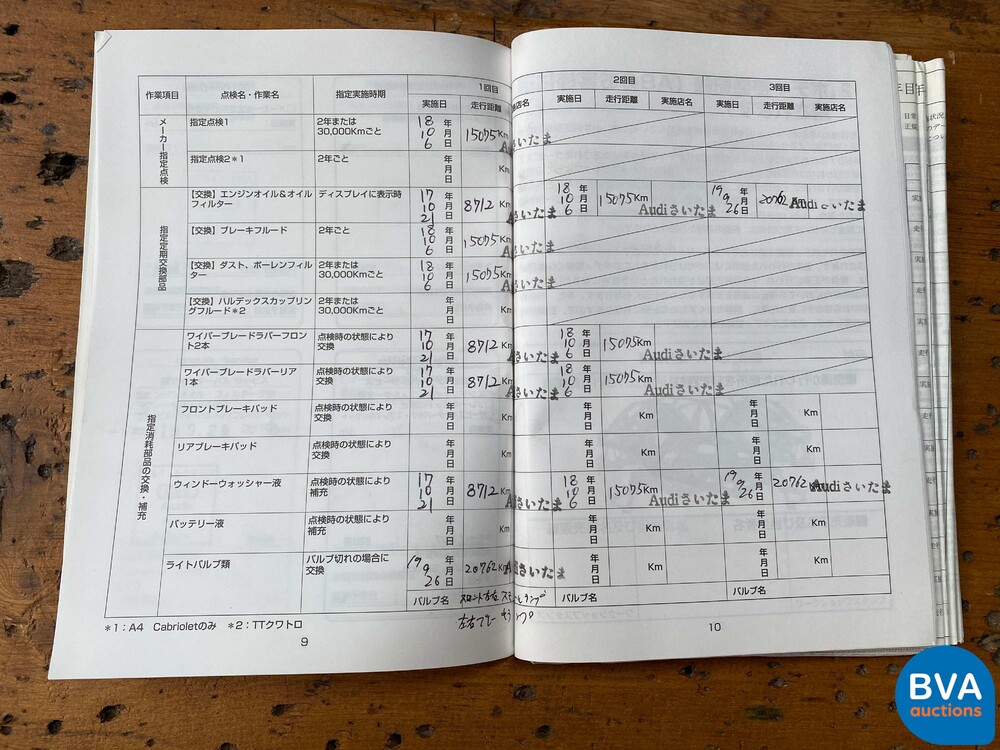 1回目
2回目
3回目
作業項目
点検名・作業名
指定実施時期
実施日
走行距離
施店名
実施日
走行距離
実施店名
実施日
走行距離
実施店名
メーカー指定点検
指定点検1
2年または
30,000Kmごと
18年
10月
6日
15075Km
さいたま
指定点検2*1
2年ごと
年
月
日
Km
指定定期交換部品
【交換】エンジンオイル&オイル
フィルター
ディスプレイに表示時
17年
10月
21日
8712 Km
さいたま
18年
10月
6日
15075Km
Audiさいたま
19年
9月
26日
20762Km
Audiさいたま
【交換】ブレーキフルード
2年ごと
18年
10月
6日
15075Km
さいたま
【交換】ダスト、ポーレンフィル
ター
2年または
30,000Kmごと
18年
10月
6日
15075Km
さいたま
【交換】ハルデックスカップリン
グフルード*2
2年または
30,000Kmごと
年
月
日
Km
指定消耗部品の交換・補充
ワイパーブレードラバーフロン
ト2本
点検時の状態により
交換
17年
10月
21日
8712 Km
さいたま
18年
10月
6日
15075Km
Audiさいたま
ワイパーブレードラバーリア
1本
点検時の状態により
交換
17年
10月
21日
8712 Km
さいたま
18年
10月
6日
15075Km
Audiさいたま
フロントブレーキパッド
点検時の状態により
交換
年
月
日
Km
年
月
日
Km
年
月
日
Km
リアブレーキパッド
点検時の状態により
交換
年
月
日
Km
年
月
日
Km
年
月
日
Km
ウィンドーウォッシャー液
点検時の状態により
補充
17年
10月
21日
8712 Km
さいたま
18年
10月
6日
15075Km
Audiさいたま
19年
9月
26日
20762
Audiさいたま
バッテリー液
点検時の状態により
補充
年
月
日
Km
年
月
日
Km
年
月
日
Km
ライトバルブ類
バルブ切れの場合に
交換
19年
9月
26日
20762Km
さいたま
年
月
日
Km
年
月
日
Km
バルブ名
フロント左右
バルブ名
バルブ名
左右
*1:A4 Cabrioletのみ *2:TTクワトロ
9
10
BVA
auctions